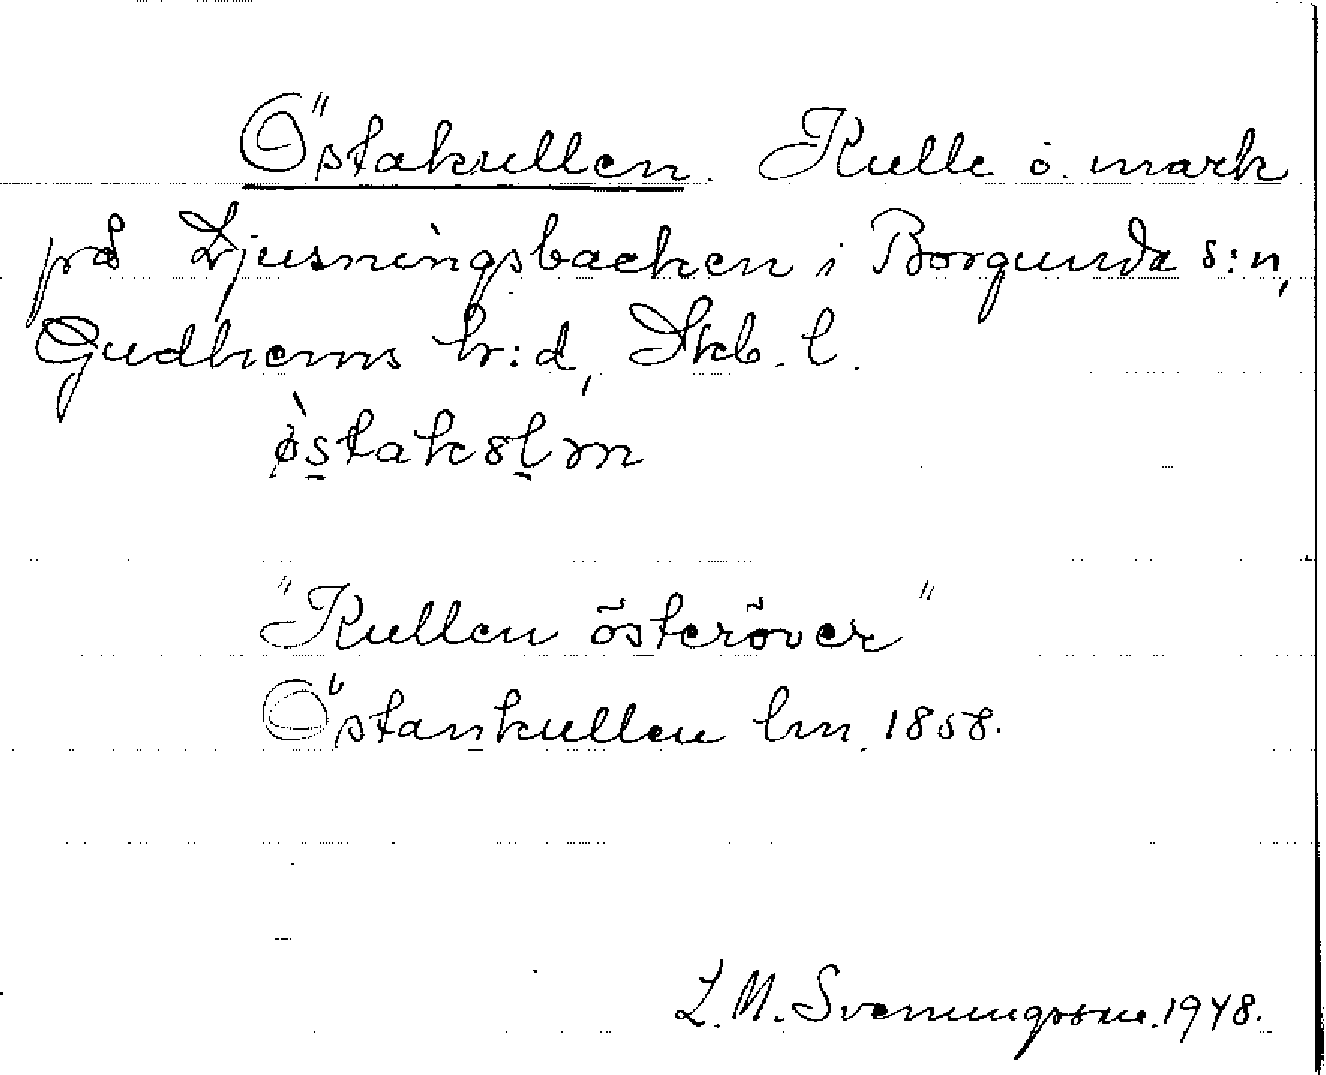 Östakullen. Kulle o. mark
på Ljusningsbacken i Borgunda s:n,
Gudhems hr:d, Skb. l.
ø̀stakɞlɜn
"Kullen österöver"
Östankullen lm. 1858.
L. M. Svenungsson. 1948.